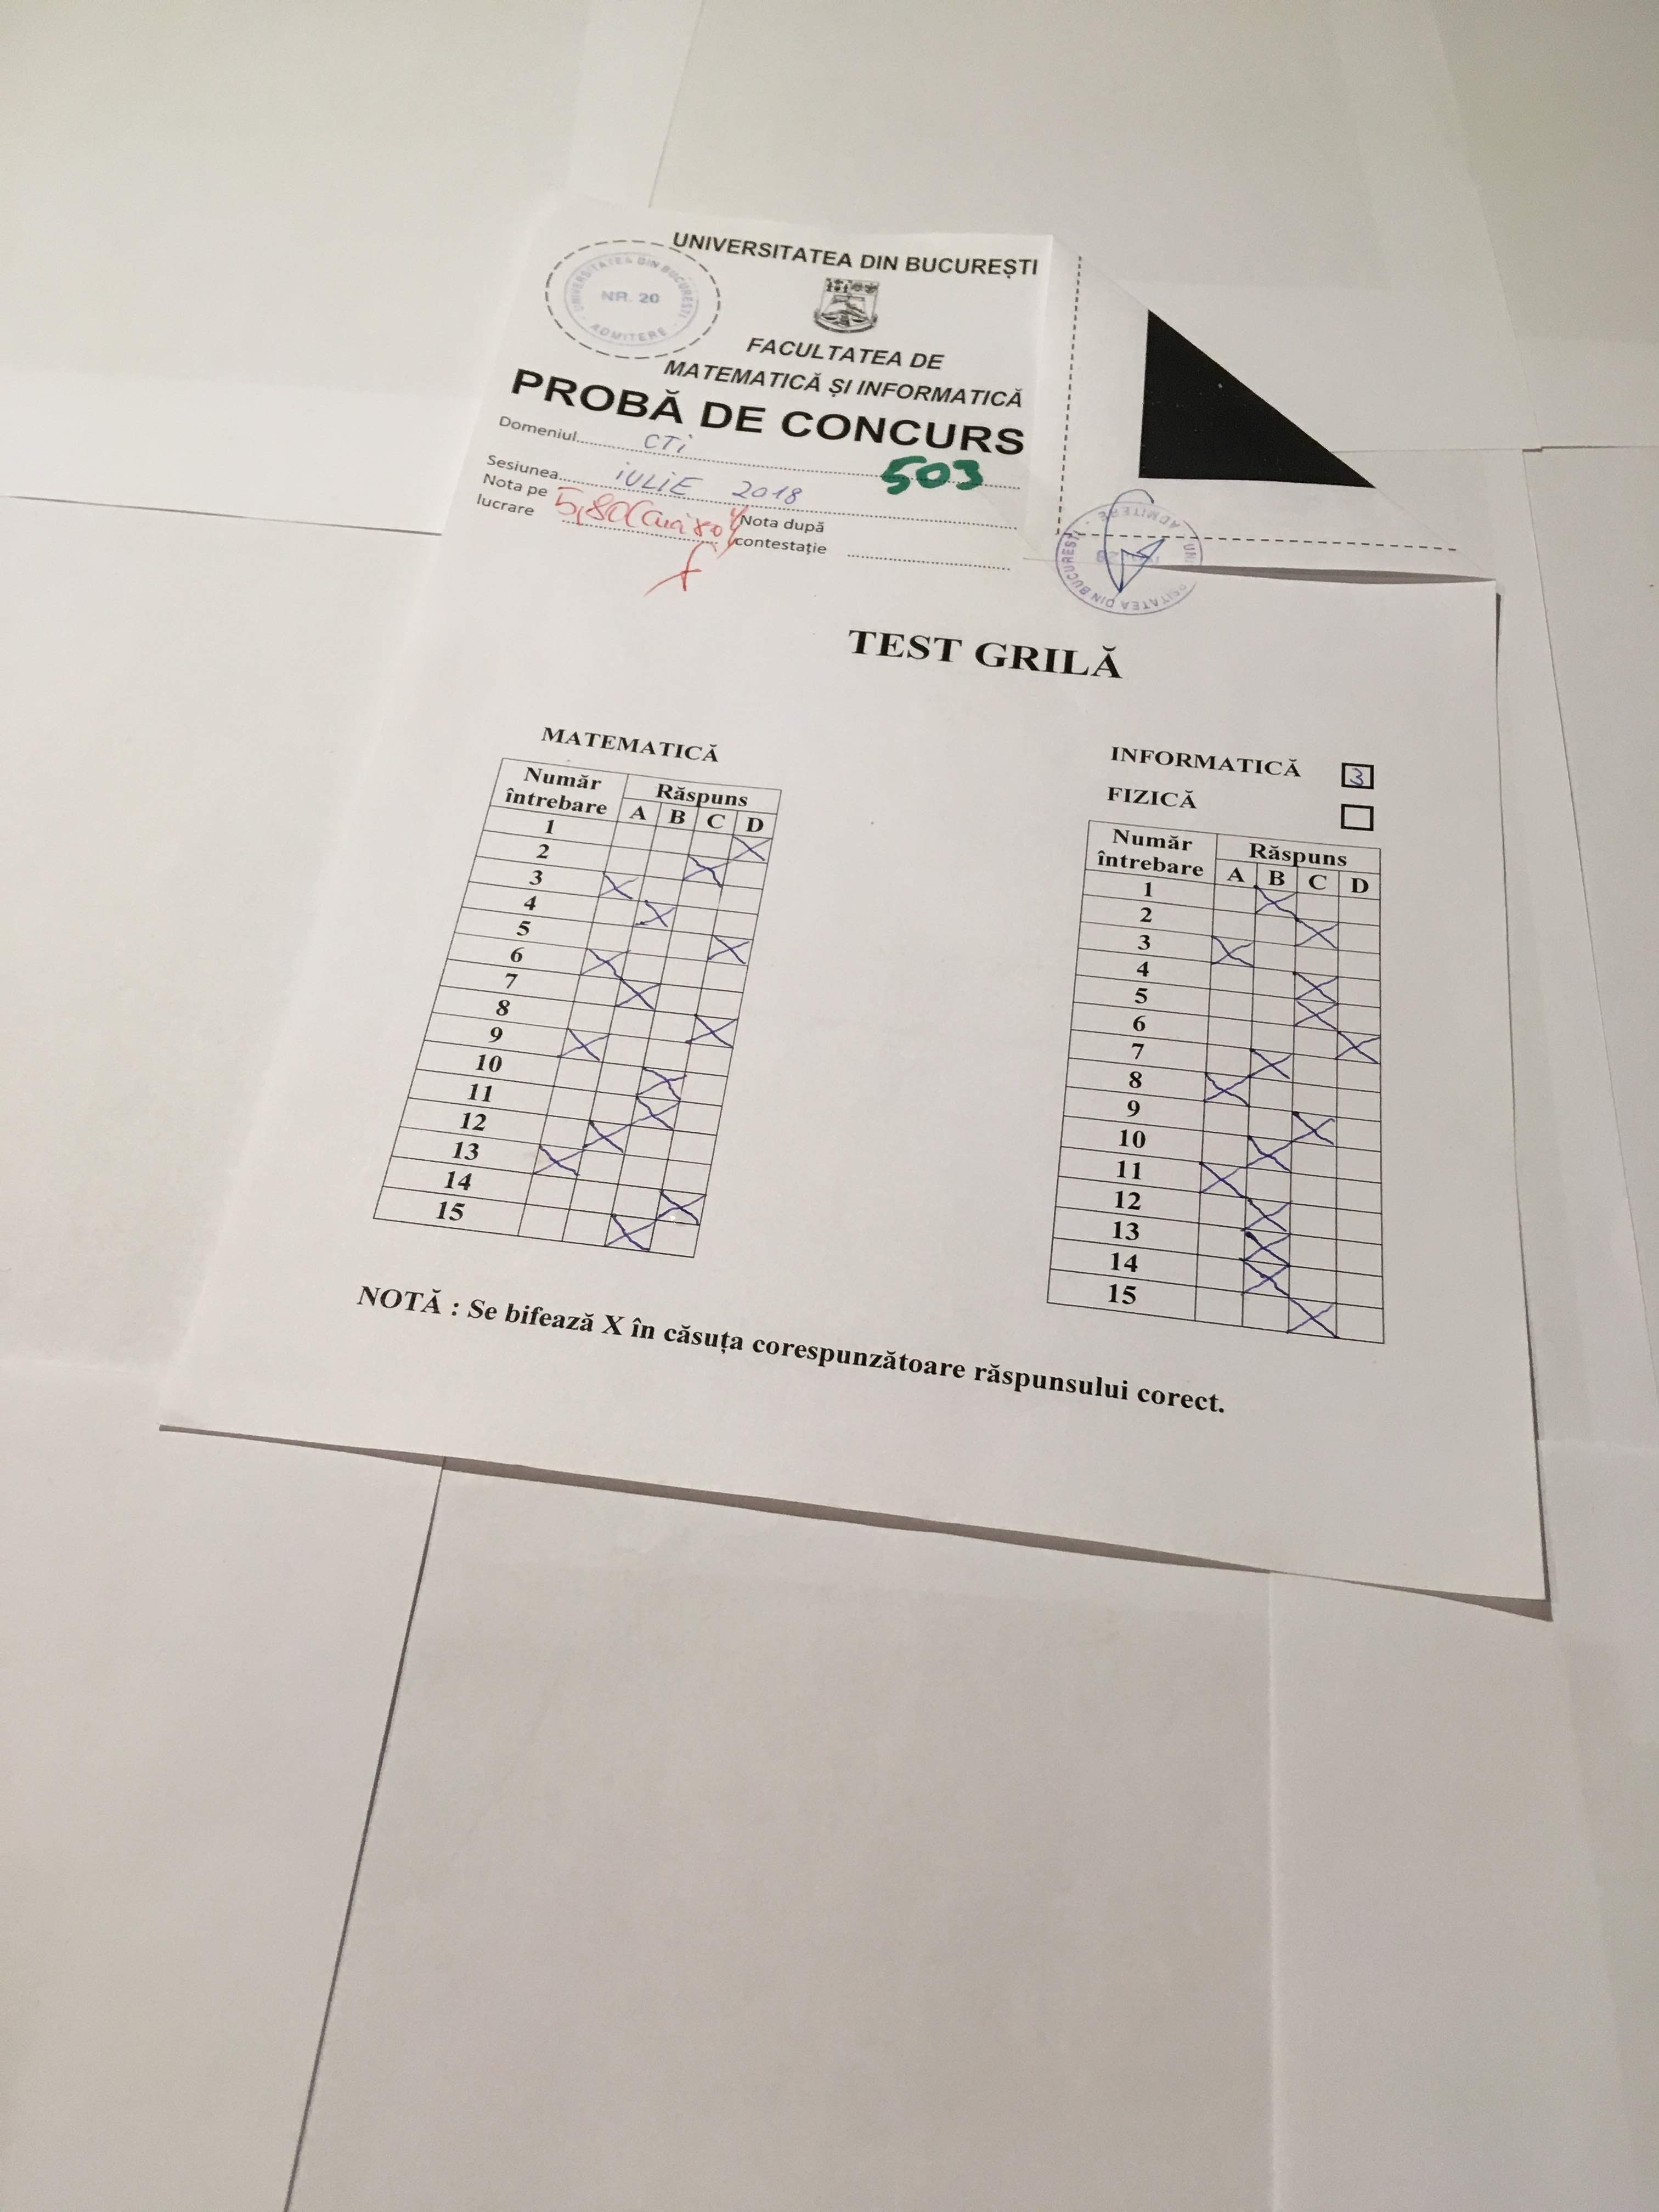 UNIVERSITATEA DIN BUCUREȘTI
UNIVERSITATEA DIN BUCURESTI
NR. 20
ADMITERE
FACULTATEA DE
MATEMATICĂ ȘI INFORMATICĂ
PROBĂ DE CONCURS
Domeniul CTi
503
Sesiunea iULiE 2018
Nota pe lucrare 5,80
Nota după contestație
ADMITERE
DIN BUCURESTI
TEST GRILĂ
MATEMATICĂ
Număr întrebare Răspuns
A B C D
1 X
2 X
3 X
4 X
5 X
6 X
7 X
8 X
9 X
10 X
11 X
12 X
13 X
14 X
15 X
INFORMATICĂ 3
FIZICĂ
Număr întrebare Răspuns
A B C D
1 X
2 X
3 X
4 X
5 X
6 X
7 X
8 X
9 X
10 X
11 X
12 X
13 X
14 X
15 X
NOTĂ : Se bifează X în căsuța corespunzătoare răspunsului corect.